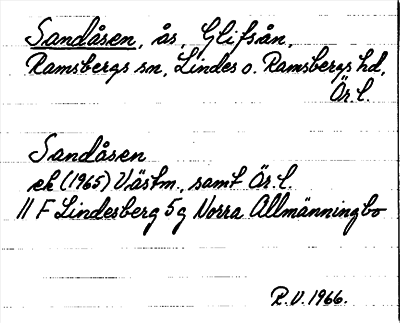 Sandåsen, ås, Glifsån,
Ramsbergs sn, Lindes o. Ramsbergs hd,
Ör. l.
Sandåsen
ek (1965) Västm., samt Ör. l.
// F Lindesberg 5g Norra Allmänningbo
R.V. 1966.